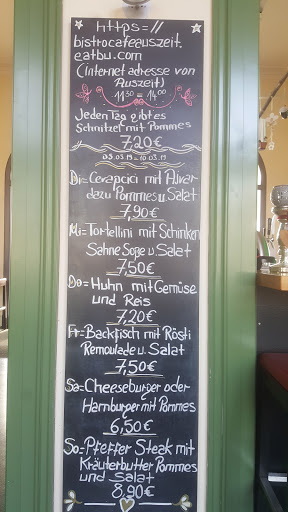 https=//
bistrocafeeauszeit.
eatbu.com
(internet adresse von
Auszeit)
11³⁰ = 14⁰⁰
Jeden Tag gibt es
Schnitzel mit Pommes
7,20€
03.03.19 = 10.03.19
Di=Cevapcici mit Aivar
dazu Pommes u. Salat
7,90€
Mi=Tortellini mit Schinken
Sahne Soße u. Salat
7,50€
Do= Huhn mit Gemüse
und Reis
7,20€
Fr=Backfisch mit Rösti
Remoulade u. Salat
7,50€
Sa=Cheeseburger oder
Hamburger mit Pommes
6,50€
So=Pfeffer Steak mit
Kräuterbutter Pommes
und Salat
8,90€